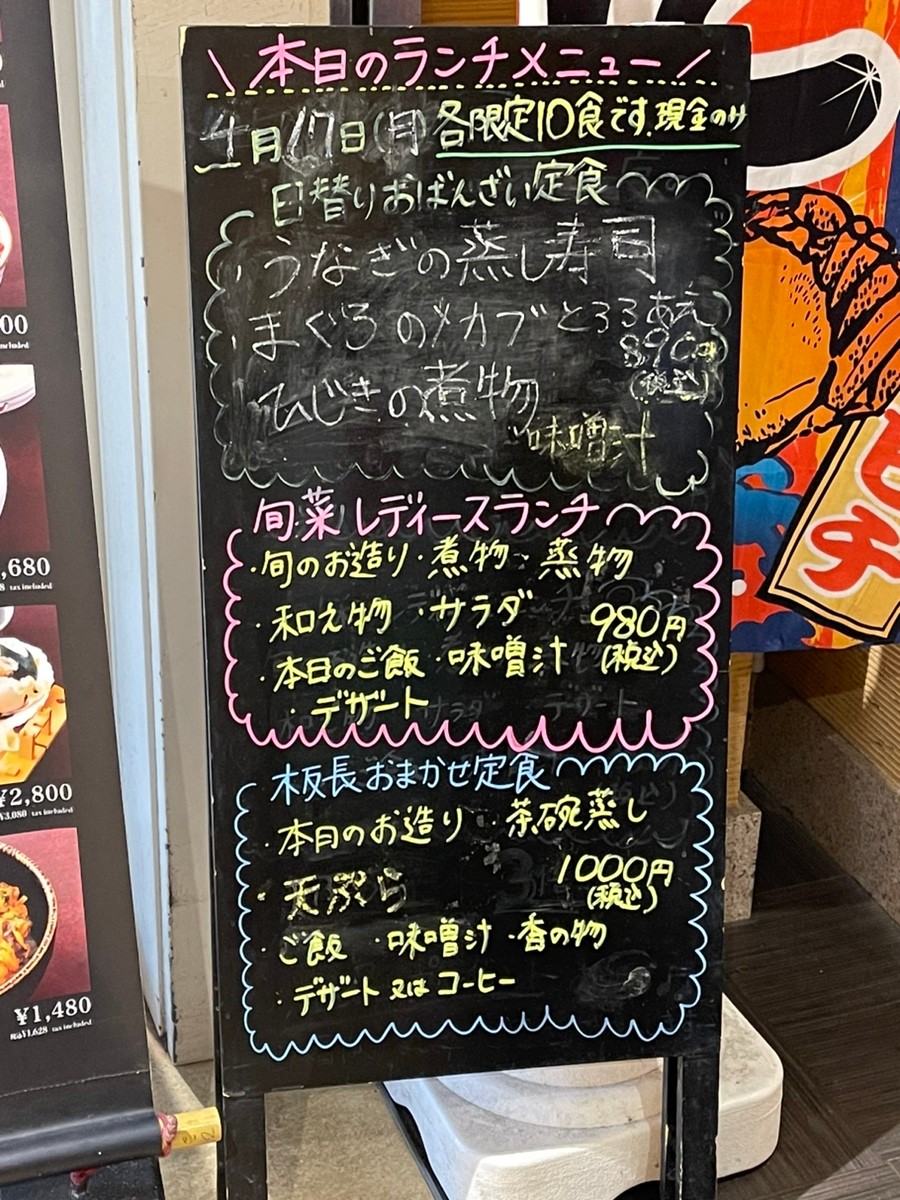 \ 本日のランチメニュー /
4月17日(月) 各限定10食です、現金のみ
日替りおばんざい定食
うなぎの蒸し寿司
まぐろのメカブとろろあえ
890円
(税込)
ひじきの煮物
味噌汁
旬菜レディースランチ
・旬のお造り・煮物・蒸物
・和え物・サラダ 980円
(税込)
・本日のご飯・味噌汁
・デザート
板長おまかせ定食
・本日のお造り・茶碗蒸し
・天ぷら 1000円
(税込)
・ご飯・味噌汁・香の物
・デザート又はコーヒー
00
,680
¥2,800
¥3,080 tax included
¥1,480
税込¥1,628 tax included